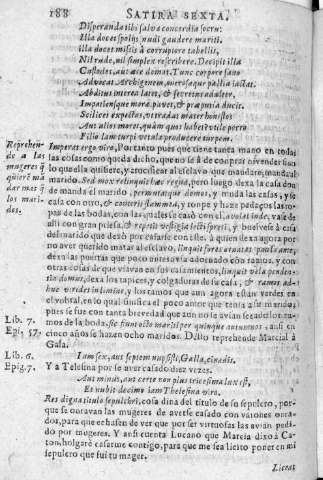 188 SATIRA SEXTA.
Desperanda tibi salva concordia socru:
Illa docet spolijs nudi gaudere mariti,
Illa docet missis à corruptore tabellis,
Nil rude, nil simplex rescribere. Decipit illa
Custodes, aut ære domat. Tunc corpore sano
Advocat Archigenem, onerosaque pallia iactat.
Abditus interea latet, & secretus adulter,
Impatiensque moræ pavet, & præputia ducit.
Scilicet expectas, ut tradat mater honestos
Aut alios mores, quàm quos habet? utile porrò
Filiolam turpi vetulæ producere turpem.
Reprehende a las mugeres q quierē mādar mas q los maridos.
Imperat ergo viro, Por tanto pues que tiene tanta mano en todas
las cosas como queda dicho, que no se à de comprar ni vender sino
lo que ella quisiere, y crucificar al esclavo que mandare, manda al
marido. Sed mox relinquit hæc regna, pero luego dexa la casa don
de manda el marido, permutatque domos, y muda las casas, y se
casa con otro, & conterit flammea, y rompe y haze pedaços las ro-
pas de las bodas, con las quales se casò con el, avolat inde, vase de
alli con gran priesa, & repetit vestigia lecti spreti, y buelvese à casa
del marido que dexò por casarse con ellos, à quien dexa agora por
no aver querido matar al esclavo, linquit fores ornatas paulò ante,
dexa las puertas que poco antes avia adornado con ramos, y con
otras cosas de que usavan en sus casamientos, linquit vela penden-
tia domus, dexa los tapices, y colgaduras de su casa, & ramos ad-
huc virides in limine, y los ramos que aun agora estan verdes en
el vmbral, en lo qual significa el poco amor que tenia al marido,
pues se fue con tanta brevedad que aun no se avian secado los ra-
Lib. 7. mos de la boda, sic fiunt octo mariti per quinque autumnos, assi en
Epi, 57. cinco años se hazen ocho maridos. Desto reprehende Marcial à
Gala.
Lib. 6. Iam sex, aut septem nupsisti, Galla, cinædis.
Epig. 7. Y à Telesina por se aver casado diez vezes.
Aut minus, aut certe non plus tricesima lux est,
Et nubit decimo iam Thelesina viro.
Res digna titulo sepulchri, cosa dina del titulo de su sepulcro, por-
que se onravan las mugeres de averse casado con varones onra-
dos, para que echasen de ver que por ser virtuosas las avian pedi-
do por mugeres. Y assi cuenta Lucano que Marcia dixo à Ca-
ton, holgarè casarme contigo, para que me sea licito poner en mi
sepulcro que fui tu muger.
Liceat